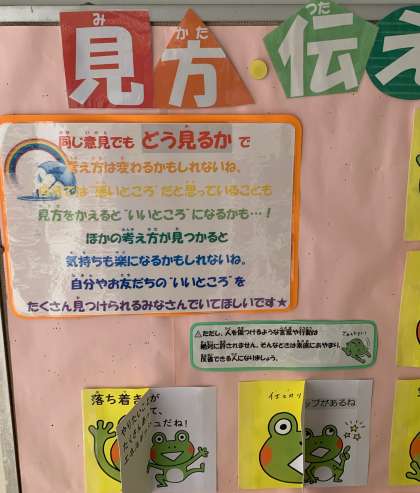 見方 伝え
同じ意見でも どう見るか で
考え方は変わるかもしれないね。
自分では"悪いところ"だと思っていることも
見方をかえると"いいところ"になるかも…！
ほかの考え方が見つかると
気持ちも楽になるかもしれないね。
自分やお友だちの"いいところ"を
たくさん見つけられるみなさんでいてほしいです★
⚠ただし、人を傷つけるような言葉や行動は
絶対に許されません。そんなときは素直にあやまり、
反省できる人になりましょう。
落ち着き が
て、
ュだね！
やりたい
たくさんあって
ップがあるね